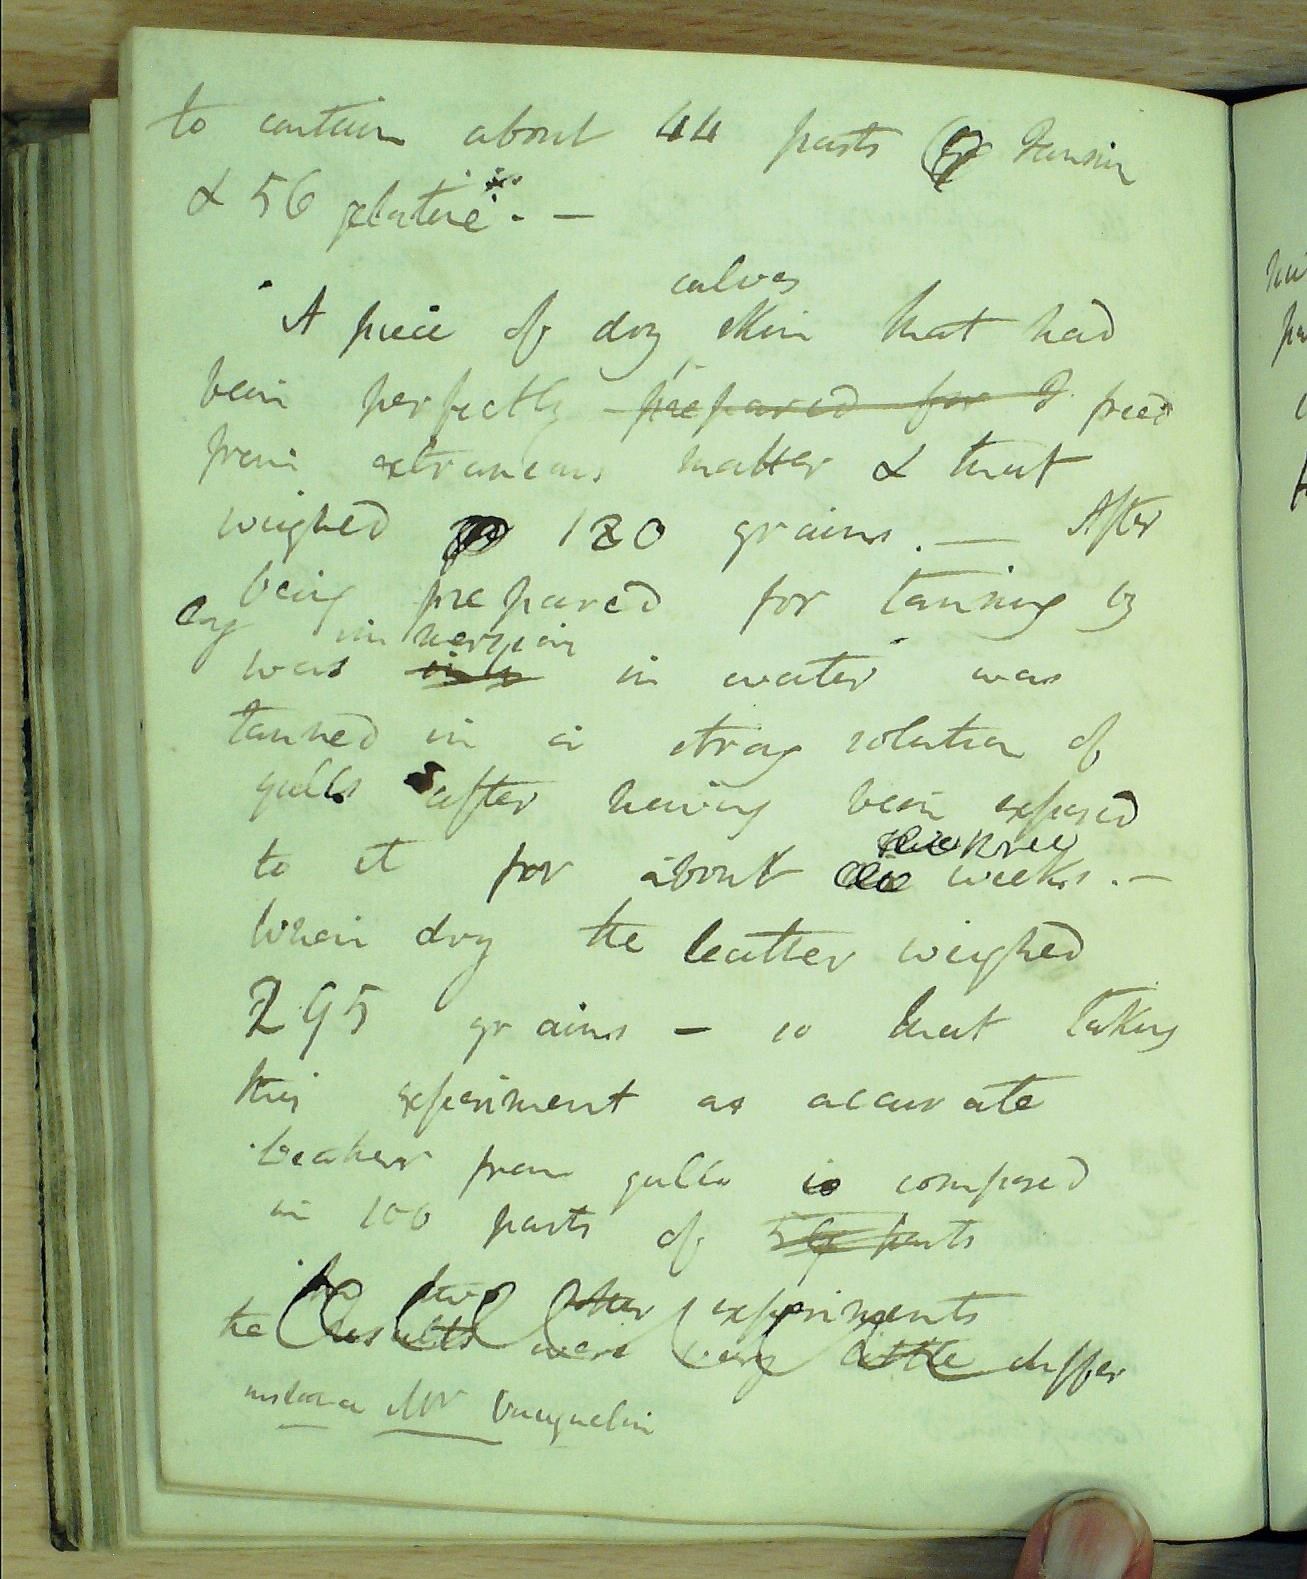 to contain about 44 parts of Tannin
& 56 gelatine. —
calves
A piece of dry skin that had
been perfectly prepared for T freed
from extraneous matter & that
weighed 180 grains. — After
being prepared for tanning by
by immersion
was in water was
tanned in a strong solution of
galls after having been exposed
three
to it for about weeks. —
When dry the leather weighed
295 grains — so that taking
this experiment as accurate
leather from galls is composed
in 100 parts of parts
In two other experiments
the results were very little differ
Mr Vauquelin